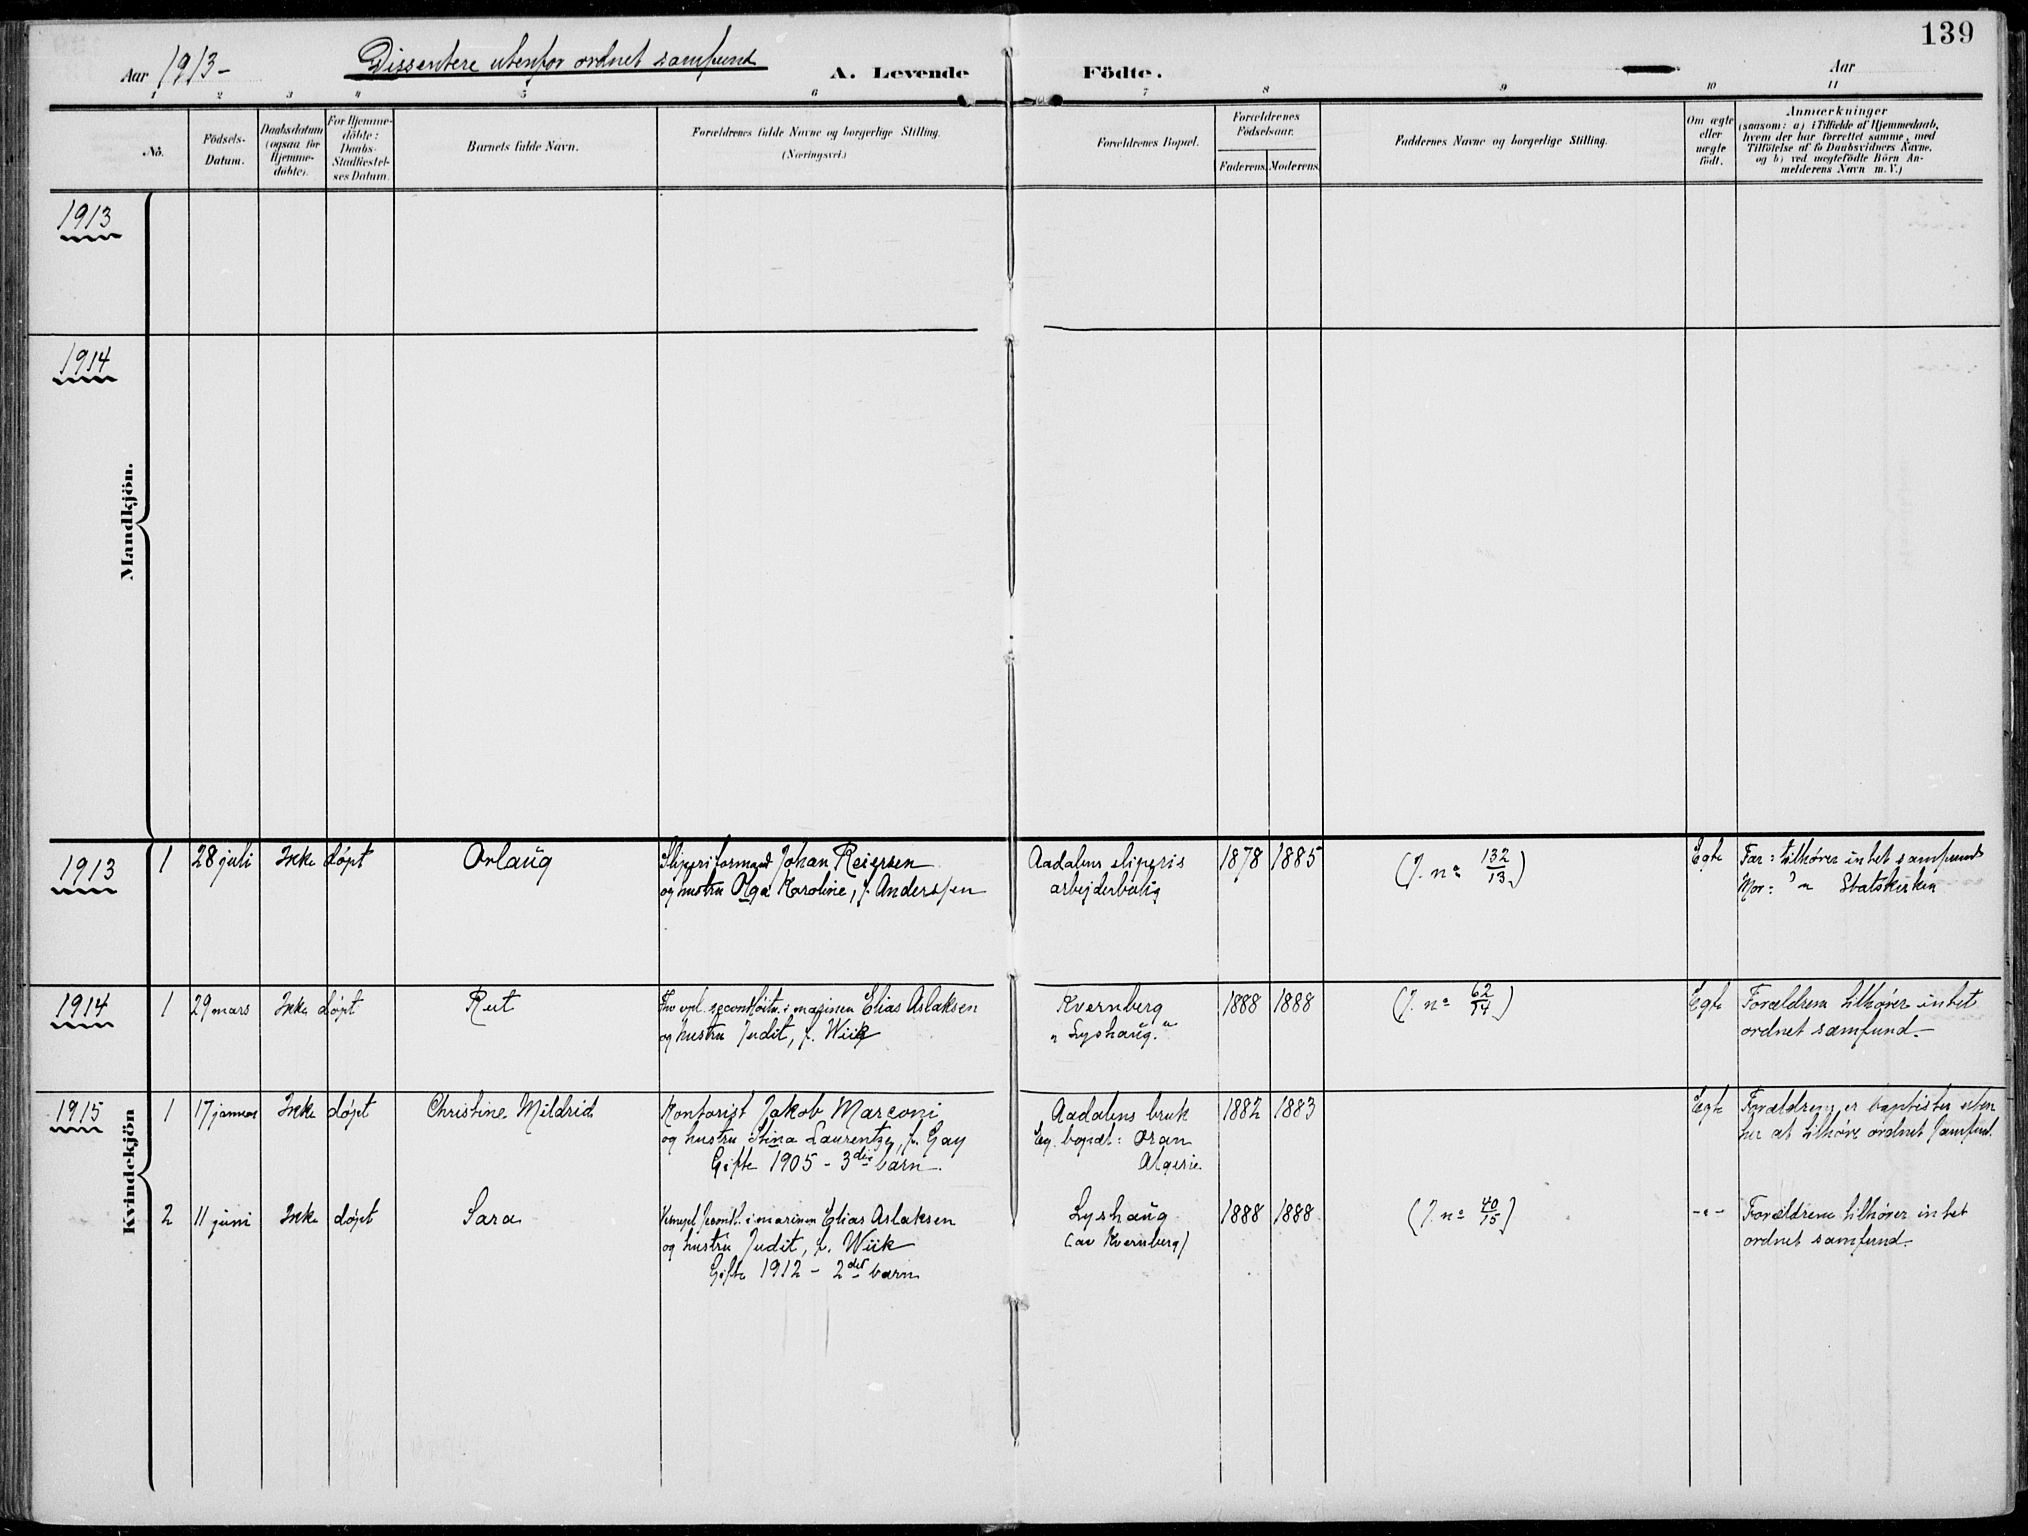 139
Aar 1913-
Dissentere utenfor ordnet samfund
A. Levende Födte.
Aar
1 2 3 4 5 6 7 8 9 10 11
No.
Födsels-
Datum.
Daabsdatum
(ogsaa for
Hjemme-
döbte).
For Hjemme-
döbte:
Daabs-
Stadfæstel-
ses Datum.
Barnets fulde Navn.
Forældrenes fulde Navne og borgerlige Stilling.
(Næringsvei.)
Forældrenes Bopæl.
Forældrenes
Födselsaar.
Faderens. Moderens.
Faddernes Navne og borgerlige Stilling.
Om ægte
eller
uægte
födt.
Anmærkninger
(saasom: a) i Tilfælde af Hjemmedaab,
hvem der har forrettet samme, med
Tilföielse af to Daabsvidners Navne,
og b) ved uægtefödte Börn An-
melderens Navn m. V.)
1913
1914
Mandkjön.
1913
1 28 juli Ikke døpt Orlaug
Sliperiformand Johan Reiersen
og hustru Olga Karoline, f. Anderssen
Aadalens sliperis
arbejderbolig
1878 1885
(J. no 132/13)
Egte
Far: tilhører intet samfund
Mor: " Statskirken
1914
1 29 mars Ikke døpt Rut
i marinen Elias Aslaksen
og hustru Judit, f. Wiik
Kvernberg
"Lyshaug."
1888 1888
(J. no 62/14)
Egte
Forældrene tilhører intet
ordnet samfund.
1915
Kvindekjön
1 17 januar Ikke døpt Christine Mildrid
Kontorist Jakob Marconi
og hustru Stina Laurentze, f. Gay
Gifte 1905 - 3die barn.
Aadalens bruk
Eg. bopæl: Oran
Algerie
1882 1883
Egte
Forældrene er baptister uten
her at tilhøre ordnet samfund.
2 11 juni Ikke døpt Sara
i marinen Elias Aslaksen
og hustru Judit, f. Wiik
Gifte 1912 - 2det barn
Lyshaug
(av Kvernberg)
1888 1888
(J. no 40/15)
-"-
Forældrene tilhører intet
ordnet samfund.